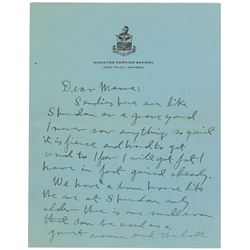 MOUNTED SERVICE SCHOOL
FORT RILEY, KANSAS.
Dear Mama:
Sundies here are like
Sheridan or a grave yard
I never saw anything so quiet
it is fierce and hard to get
used to I fear I will get fat I
have in fact gained already.
We have a brown house like
the one at Sheridan only
older there is one small room
that can be used as a
guest room and the bath